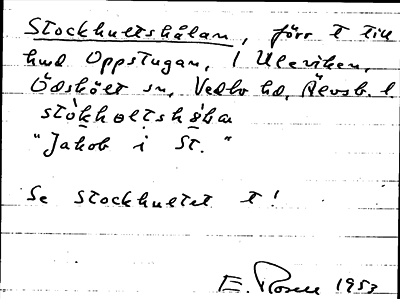 Stockhultshålan, förr t till
hmd Oppstugan, i Ulerihen,
Ödskölt sn, Vedbo hd, Älvsb. l.
stòkholtshòla
"Jakob i St."
Se Stockhultet t!
E. Rosell 1953